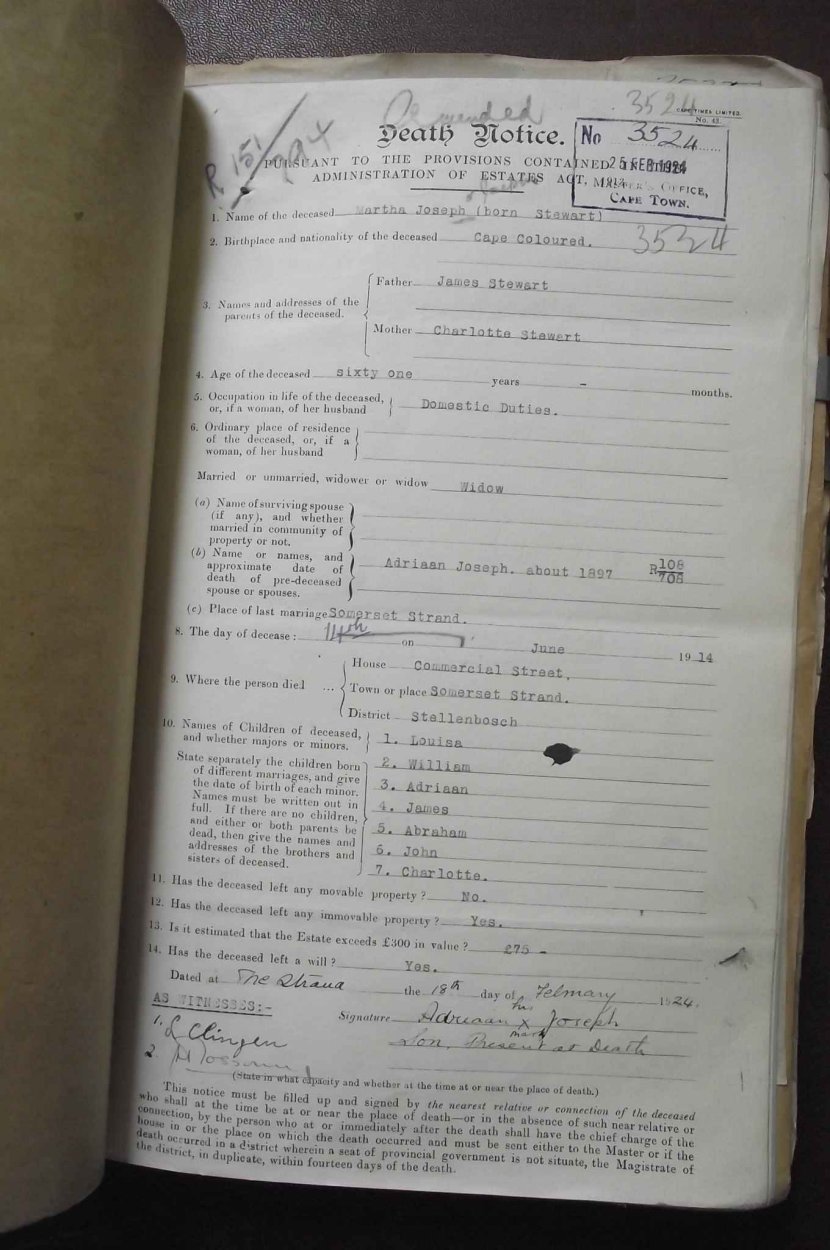 Amended
3524
CAPE TIMES LIMITED.
No. 43.
Death Notice.
No 3524
25 FEB 1924
MASTER'S OFFICE,
CAPE TOWN.
PURSUANT TO THE PROVISIONS CONTAINED IN THE
ADMINISTRATION OF ESTATES ACT, 1913.
1. Name of the deceased Martha Joseph (born Stewart)
2. Birthplace and nationality of the deceased Cape Coloured.
3524
3. Names and addresses of the parents of the deceased.
Father James Stewart
Mother Charlotte Stewart
4. Age of the deceased sixty one years - months.
5. Occupation in life of the deceased,
or, if a woman, of her husband Domestic Duties.
6. Ordinary place of residence
of the deceased, or, if a
woman, of her husband
Married or unmarried, widower or widow Widow
(a) Name of surviving spouse
(if any), and whether
married in community of
property or not.
(b) Name or names, and
approximate date of
death of pre-deceased
spouse or spouses.
Adriaan Joseph. about 1897 R108
708
(c) Place of last marriage Somerset Strand.
8. The day of decease: 14th on June 1914
9. Where the person died ...
House Commercial Street,
Town or place Somerset Strand.
District Stellenbosch
10. Names of Children of deceased,
and whether majors or minors.
State separately the children born
of different marriages, and give
the date of birth of each minor.
Names must be written out in
full. If there are no children,
and either or both parents be
dead, then give the names and
addresses of the brothers and
sisters of deceased.
1. Louisa
2. William
3. Adriaan
4. James
5. Abraham
6. John
7. Charlotte.
11. Has the deceased left any movable property? No.
12. Has the deceased left any immovable property? Yes.
13. Is it estimated that the Estate exceeds £300 in value? £75 -
14. Has the deceased left a will? Yes.
Dated at The Strand the 18th day of February 1924.
AS WITNESSES:-
Signature Adriaan his x mark Joseph
1. L Clingen
Son, Present at Death
2.
(State in what capacity and whether at the time at or near the place of death.)
This notice must be filled up and signed by the nearest relative or connection of the deceased
who shall at the time be at or near the place of death—or in the absence of such near relative or
connection, by the person who at or immediately after the death shall have the chief charge of the
house in or the place on which the death occurred and must be sent either to the Master or if the
death occurred in a district wherein a seat of provincial government is not situate, the Magistrate of
the district, in duplicate, within fourteen days of the death.